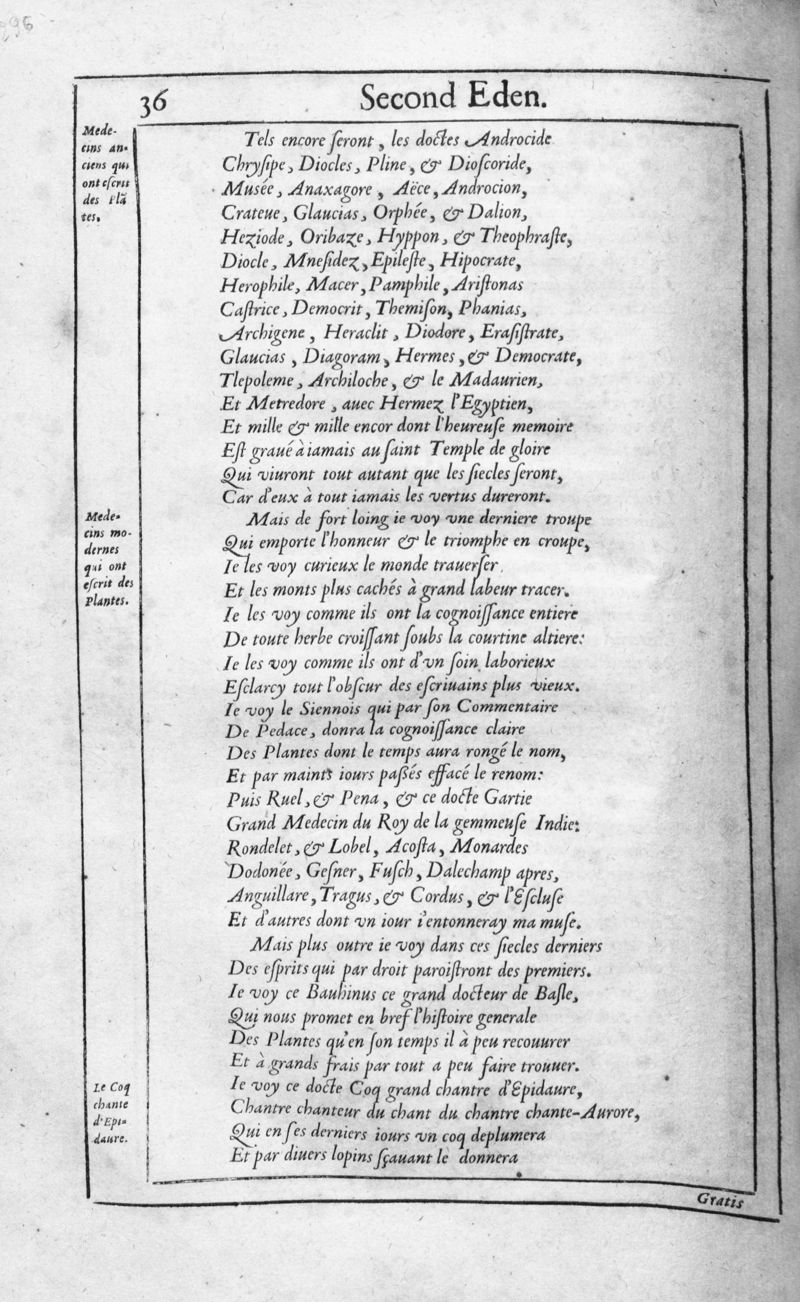 36
Second Eden.
Mede-
cins an-
ciens qui
ont escrit
des Plã
tes.
Tels encore ſeront, les doctes Androcide
Chryſipe, Diocles, Pline, & Dioſcoride,
Musée, Anaxagore, Aëce, Androcion,
Crateue, Glaucias, Orphée, & Dalion,
Heziode, Oribaze, Hyppon, & Theophraſte,
Diocle, Mneſidez, Epileſte, Hipocrate,
Herophile, Macer, Pamphile, Ariſtonas
Caſtrice, Democrit, Themiſon, Phanias,
Archigene, Heraclit, Diodore, Eraſiſtrate,
Glaucias, Diagoram, Hermes, & Democrate,
Tlepoleme, Archiloche, & le Madaurien,
Et Metredore, auec Hermez l'Egyptien,
Et mille & mille encor dont l'heureuſe memoire
Eſt graué à iamais au ſaint Temple de gloire
Qui viuront tout autant que les ſiecles ſeront,
Car d'eux à tout iamais les vertus dureront.
Mede-
cins mo-
dernes
qui ont
eſcrit des
Plantes.
Mais de fort loing ie voy vne derniere troupe
Qui emporte l'honneur & le triomphe en croupe,
Ie les voy curieux le monde trauerſer
Et les monts plus cachés à grand labeur tracer.
Ie les voy comme ils ont la cognoiſſance entiere
De toute herbe croiſſant ſoubs la courtine altiere:
Ie les voy comme ils ont d'vn ſoin laborieux
Eſclarcy tout l'obſcur des eſcriuains plus vieux.
Ie voy le Siennois qui par ſon Commentaire
De Pedace, donra la cognoiſſance claire
Des Plantes dont le temps aura rongé le nom,
Et par maints iours paßés effacé le renom:
Puis Ruel, & Pena, & ce docte Gartie
Grand Medecin du Roy de la gemmeuſe Indie:
Rondelet, & Lobel, Acoſta, Monardes
Dodonée, Geſner, Fuſch, Dalechamp apres,
Anguillare, Tragus, & Cordus, & l'Eſcluſe
Et d'autres dont vn iour i'entonneray ma muſe.
Mais plus outre ie voy dans ces ſiecles derniers
Des eſprits qui par droit paroiſtront des premiers.
Ie voy ce Bauhinus ce grand docteur de Baſle,
Qui nous promet en bref l'hiſtoire generale
Des Plantes qu'en ſon temps il à peu recouurer
Et à grands frais par tout a peu faire trouuer.
Le Coq
chante
d'Epi-
daure.
Ie voy ce docte Coq grand chantre d'Epidaure,
Chantre chanteur du chant du chantre chante-Aurore,
Qui en ſes derniers iours vn coq deplumera
Et par diuers lopins ſçauant le donnera
Gratis